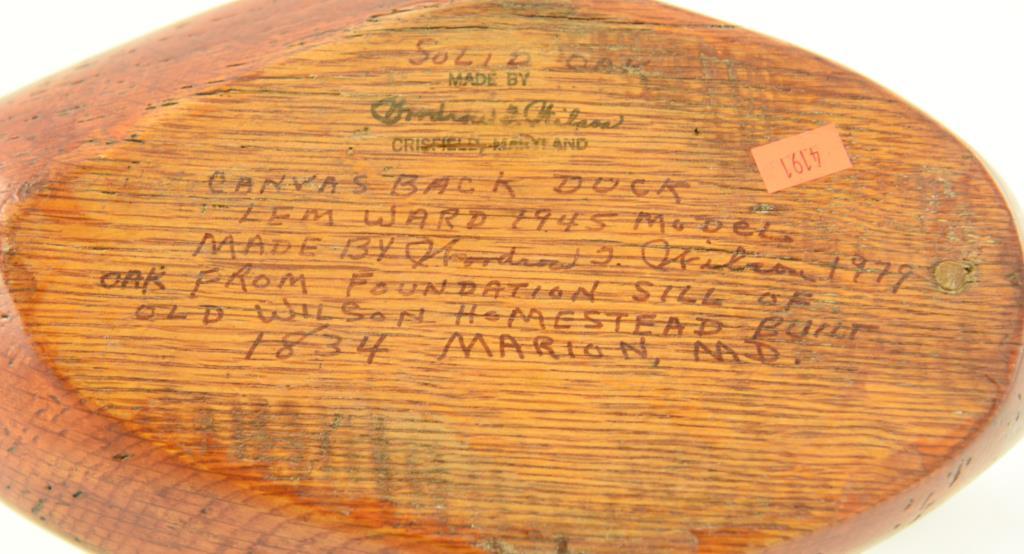 SOLID OAK
MADE BY
Woodrow I. Wilson
CRISFIELD, MARYLAND
4191
CANVAS BACK DUCK
LEM WARD 1945 MODEL
MADE BY Woodrow I. Wilson 1979
OAK FROM FOUNDATION SILL OF
OLD WILSON HOMESTEAD BUILT
1834 MARION, MD.